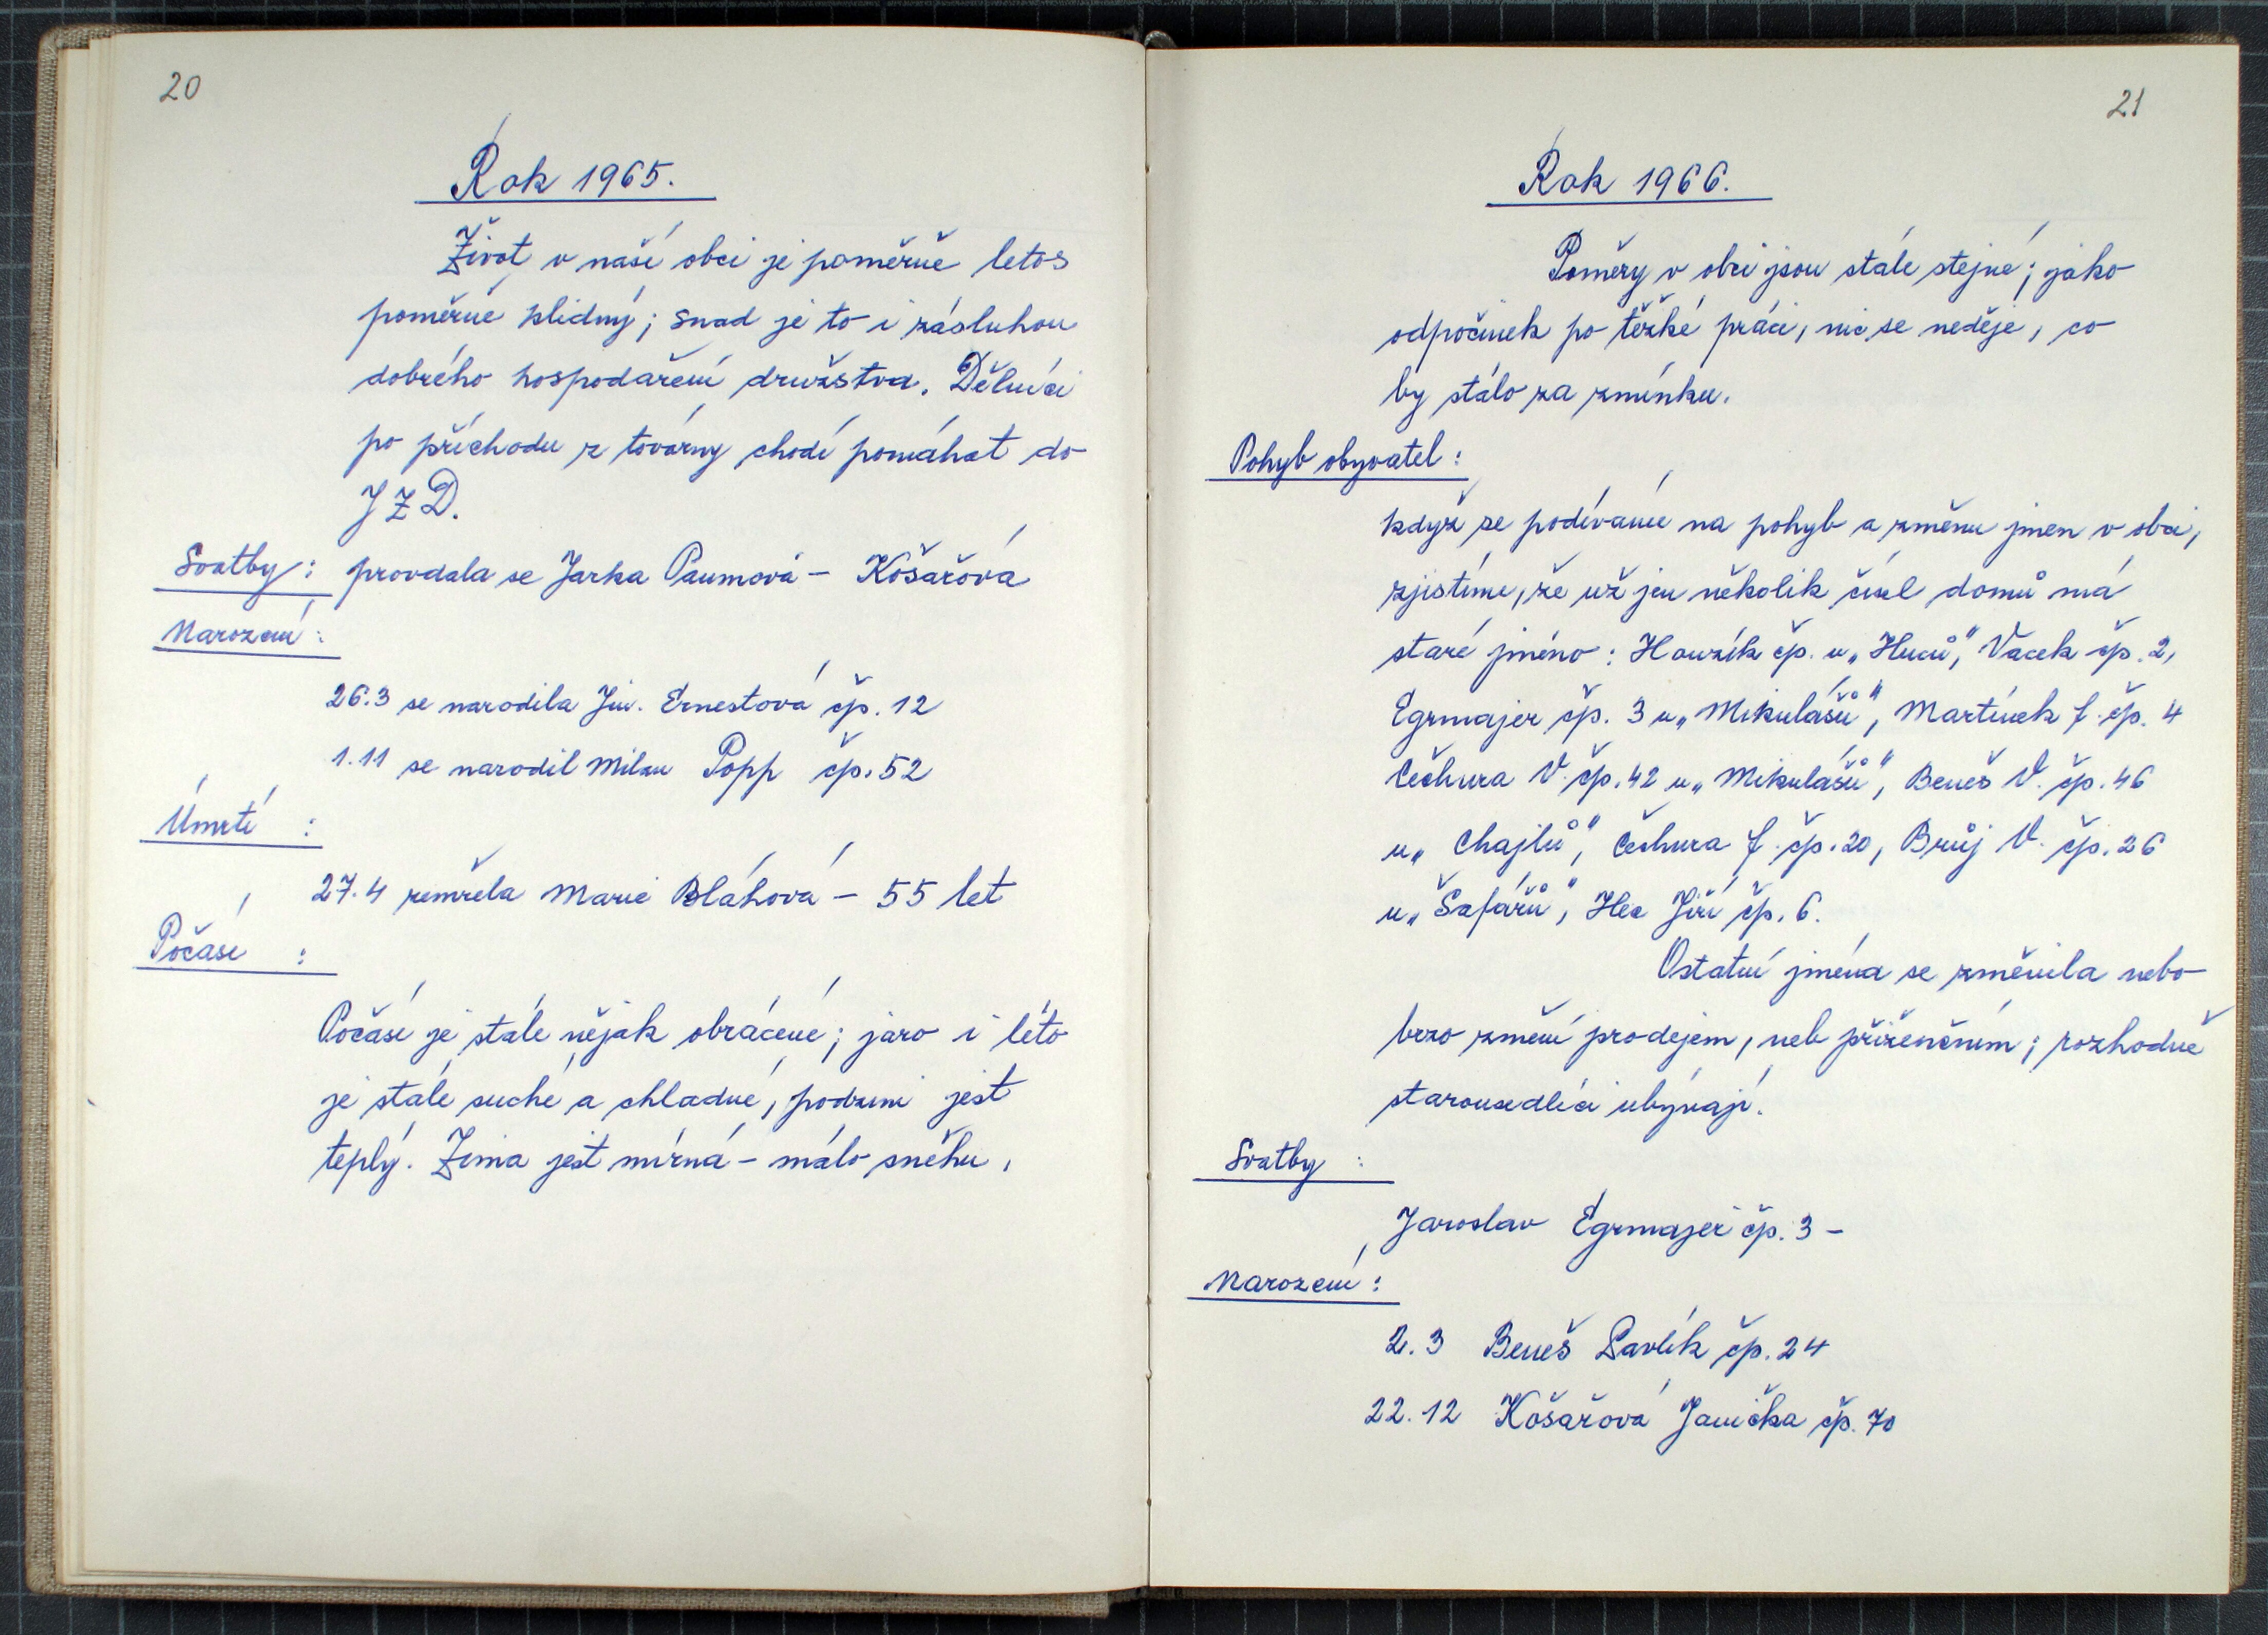 20
Rok 1965.
Život v naší obci je poměrně letos
poměrně klidný; snad je to i zásluhou
dobrého hospodaření družstva. Dělníci
po příchodu z továrny chodí pomáhat do
JZD.
Svatby: provdala se Jarka Paumová - Košařová
Narození:
26.3 se narodila Jiř. Ernestová čp. 12
1.11 se narodil Milan Popp čp. 52
Úmrtí :
27.4 zemřela Marie Bláhová - 55 let
Počásí :
Počásí je stále nějak obrácené; jaro i léto
je stále suché a chladné, podzim jest
teplý. Zima jest mírná - málo sněhu.
21
Rok 1966.
Poměry v obci jsou stále stejné; jako
odpočinek po těžké práci, nic se neděje, co
by stálo za zmínku.
Pohyb obyvatel:
když se podíváme na pohyb a změnu jmen v obci,
zjistíme, že už jen několik čísel domů má
staré jméno: Houzík čp. u „Huců", Vacek čp. 2,
Egrmajer čp. 3 u „Mikulášů", Martínek J. čp. 4
Čechura V. čp. 42 u „Mikulášů", Beneš V. čp. 46
u „Chajlů", Čechura J. čp. 20, Brůj V. čp. 26
u „Šafářů", Hec Jiří čp. 6.
Ostatní jména se změnila nebo
brzo změní prodejem, neb přiženěním; rozhodně
starousedlíci ubývají.
Svatby :
Jaroslav Egrmajer čp. 3 -
Narození:
2.3 Beneš Pavlík čp. 24
22.12 Košařová Janička čp. 70